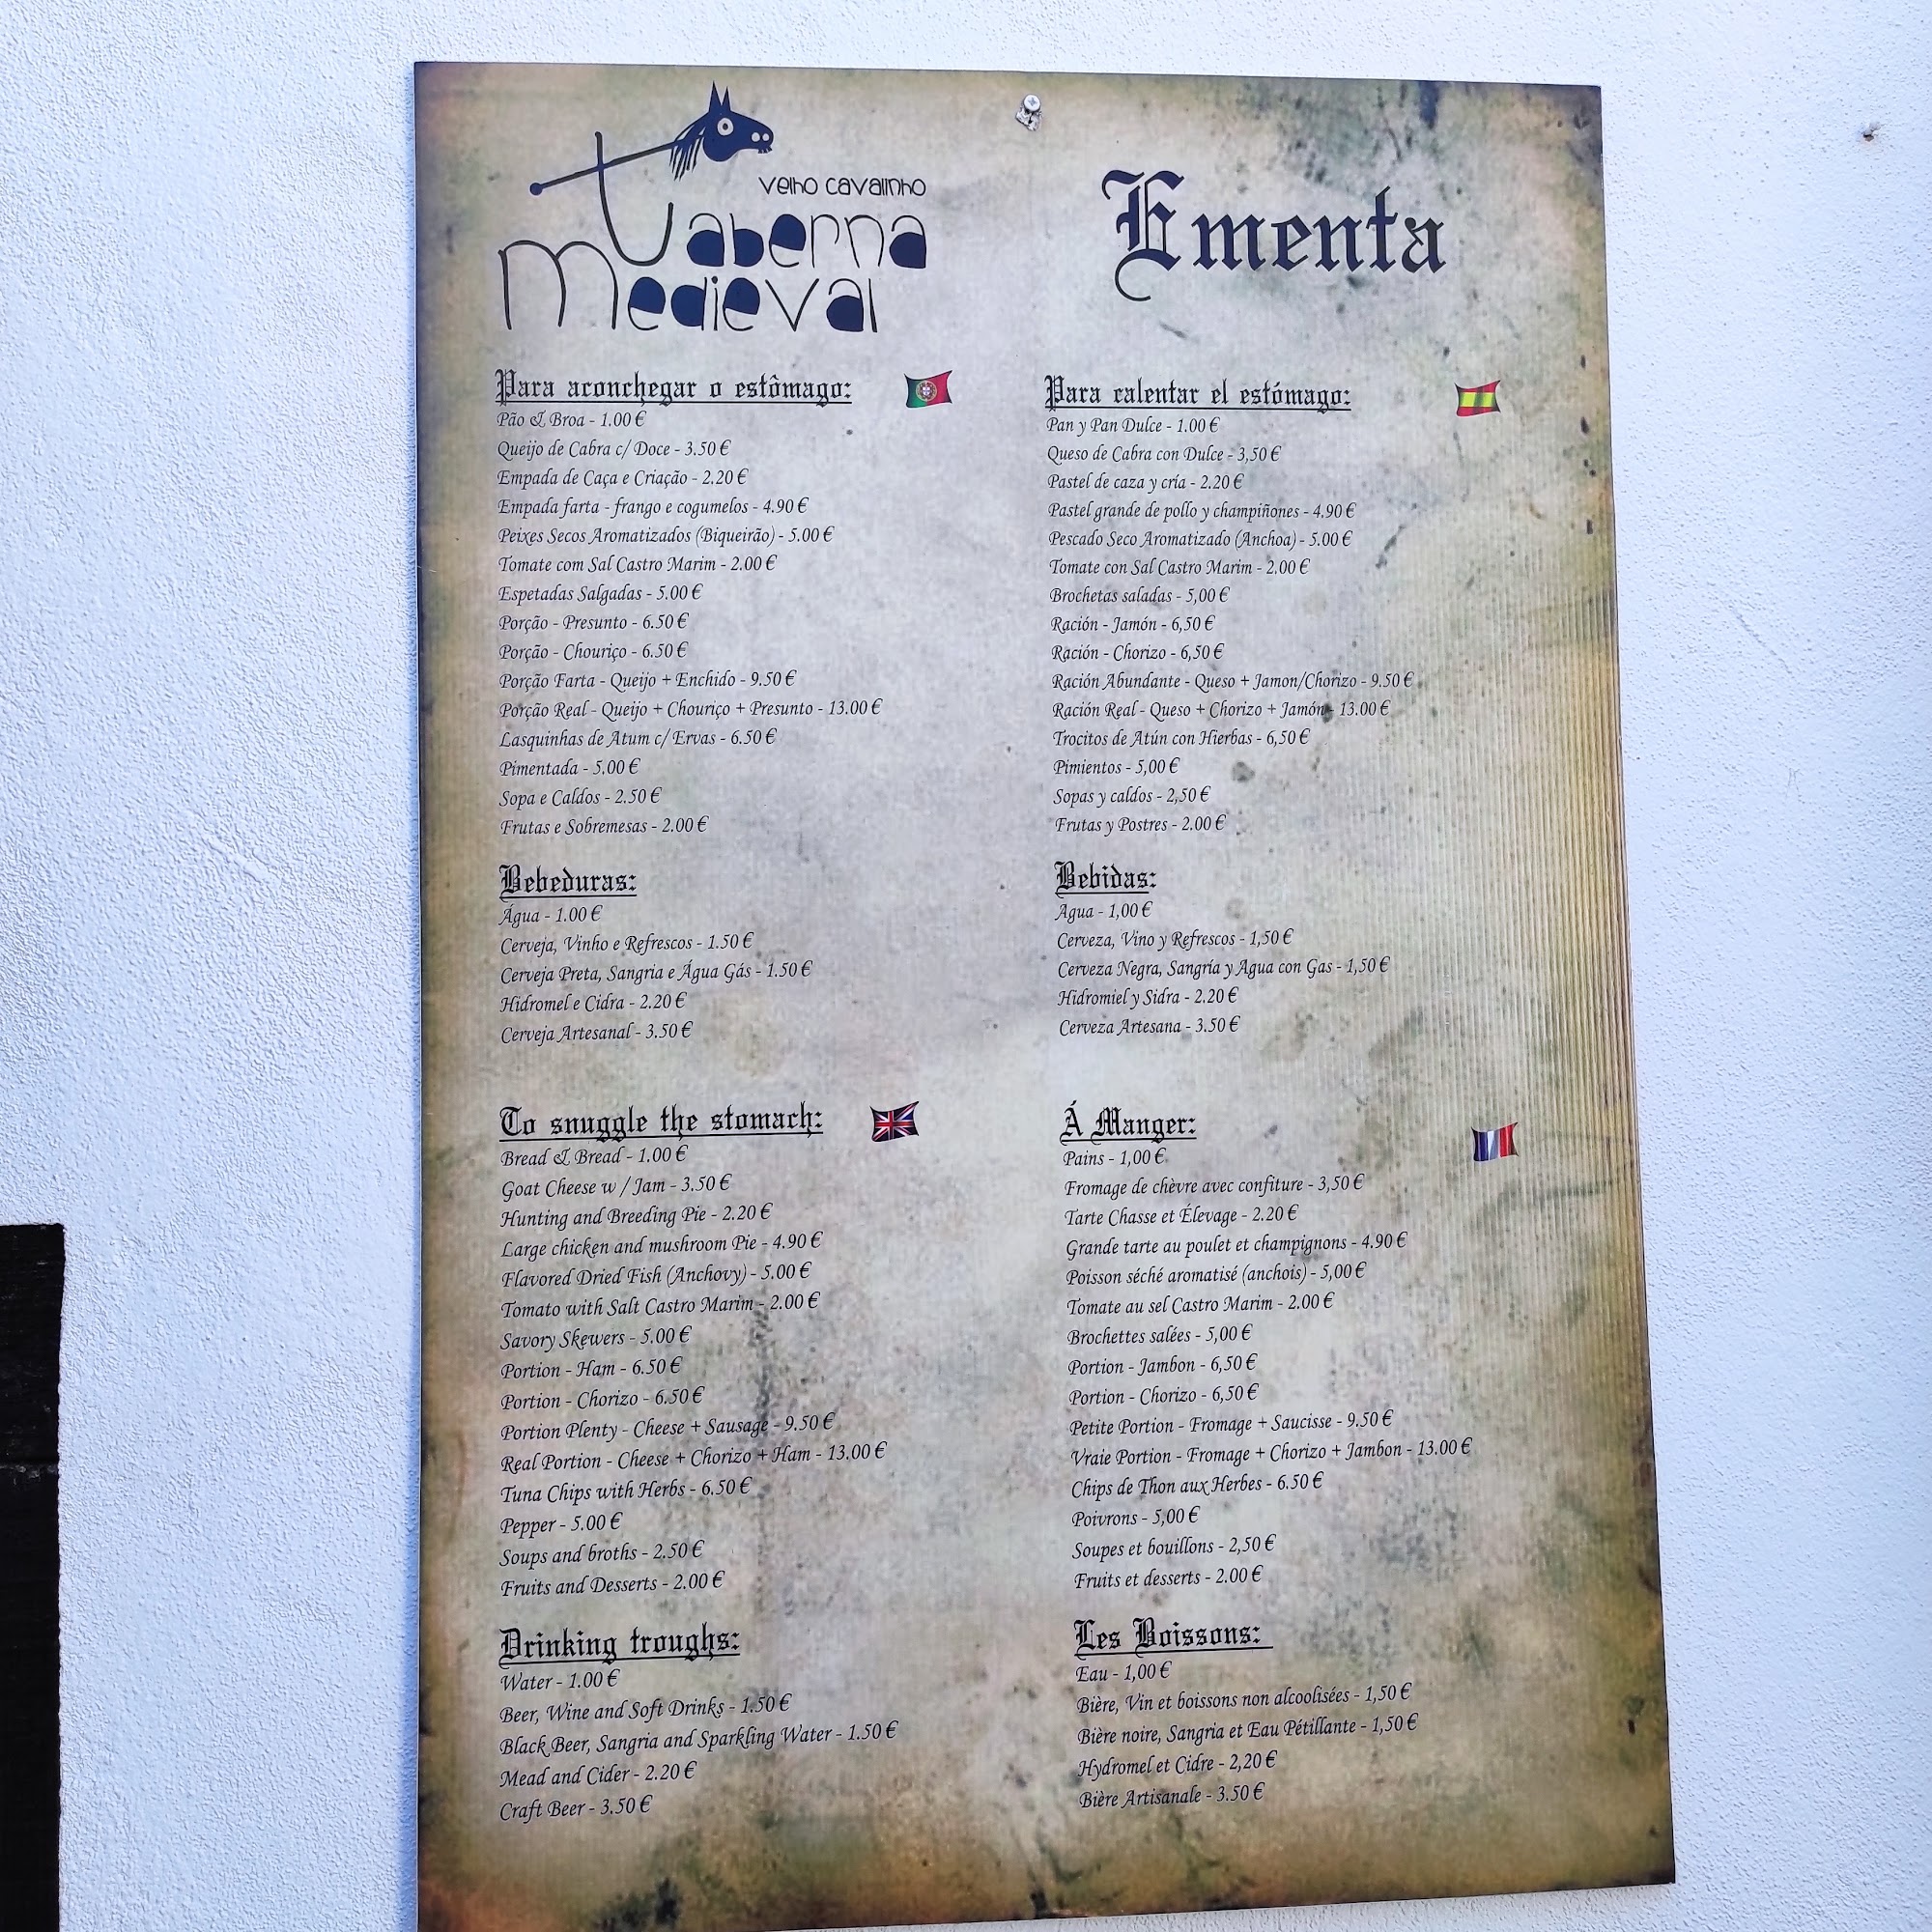 Velho Cavalinho
Taberna
Medieval
Ementa
Para aconchegar o estômago:
Pão & Broa - 1.00 €
Queijo de Cabra c/ Doce - 3.50 €
Empada de Caça e Criação - 2.20 €
Empada farta - frango e cogumelos - 4.90 €
Peixes Secos Aromatizados (Biqueirão) - 5.00 €
Tomate com Sal Castro Marim - 2.00 €
Espetadas Salgadas - 5.00 €
Porção - Presunto - 6.50 €
Porção - Chouriço - 6.50 €
Porção Farta - Queijo + Enchido - 9.50 €
Porção Real - Queijo + Chouriço + Presunto - 13.00 €
Lasquinhas de Atum c/ Ervas - 6.50 €
Pimentada - 5.00 €
Sopa e Caldos - 2.50 €
Frutas e Sobremesas - 2.00 €
Bebeduras:
Água - 1.00 €
Cerveja, Vinho e Refrescos - 1.50 €
Cerveja Preta, Sangria e Água Gás - 1.50 €
Hidromel e Cidra - 2.20 €
Cerveja Artesanal - 3.50 €
Para calentar el estómago:
Pan y Pan Dulce - 1.00 €
Queso de Cabra con Dulce - 3,50 €
Pastel de caza y cría - 2.20 €
Pastel grande de pollo y champiñones - 4.90 €
Pescado Seco Aromatizado (Anchoa) - 5.00 €
Tomate con Sal Castro Marim - 2,00 €
Brochetas saladas - 5,00 €
Ración - Jamón - 6,50 €
Ración - Chorizo - 6,50 €
Ración Abundante - Queso + Jamon/Chorizo - 9.50 €
Ración Real - Queso + Chorizo + Jamón - 13.00 €
Trocitos de Atún con Hierbas - 6,50 €
Pimientos - 5,00 €
Sopas y caldos - 2,50 €
Frutas y Postres - 2.00 €
Bebidas:
Agua - 1,00 €
Cerveza, Vino y Refrescos - 1,50 €
Cerveza Negra, Sangría y Agua con Gas - 1,50 €
Hidromiel y Sidra - 2.20 €
Cerveza Artesana - 3.50 €
To snuggle the stomach:
Bread & Bread - 1.00 €
Goat Cheese w / Jam - 3.50 €
Hunting and Breeding Pie - 2.20 €
Large chicken and mushroom Pie - 4.90 €
Flavored Dried Fish (Anchovy) - 5.00 €
Tomato with Salt Castro Marim - 2.00 €
Savory Skewers - 5.00 €
Portion - Ham - 6.50 €
Portion - Chorizo - 6.50 €
Portion Plenty - Cheese + Sausage - 9.50 €
Real Portion - Cheese + Chorizo + Ham - 13.00 €
Tuna Chips with Herbs - 6.50 €
Pepper - 5.00 €
Soups and broths - 2.50 €
Fruits and Desserts - 2.00 €
Drinking troughs:
Water - 1.00 €
Beer, Wine and Soft Drinks - 1.50 €
Black Beer, Sangria and Sparkling Water - 1.50 €
Mead and Cider - 2.20 €
Craft Beer - 3.50 €
Á Manger:
Pains - 1,00 €
Fromage de chèvre avec confiture - 3,50 €
Tarte Chasse et Élevage - 2.20 €
Grande tarte au poulet et champignons - 4.90 €
Poisson séché aromatisé (anchois) - 5,00 €
Tomate au sel Castro Marim - 2.00 €
Brochettes salées - 5,00 €
Portion - Jambon - 6,50 €
Portion - Chorizo - 6,50 €
Petite Portion - Fromage + Saucisse - 9.50 €
Vraie Portion - Fromage + Chorizo + Jambon - 13.00 €
Chips de Thon aux Herbes - 6.50 €
Poivrons - 5,00 €
Soupes et bouillons - 2,50 €
Fruits et desserts - 2.00 €
Les Boissons:
Eau - 1,00 €
Bière, Vin et boissons non alcoolisées - 1,50 €
Bière noire, Sangria et Eau Pétillante - 1,50 €
Hydromel et Cidre - 2,20 €
Bière Artisanale - 3.50 €